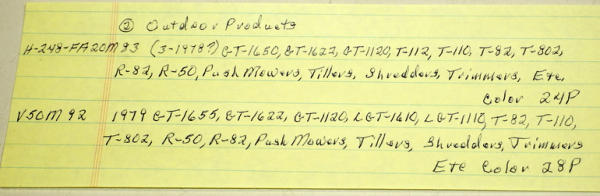 ② Outdoor Products
H-248-FA20M83 (3-1978?) GT-1650, GT-1622, GT-1120, T-112, T-110, T-82, T-802,
R-82, R-50, Push Mowers, Tillers, Shredders, Trimmers, Etc,
Color 24P
V50M92 1979 GT-1655, GT-1622, GT-1120, LGT-1610, LGT-1110, T-82, T-110,
T-802, R-50, R-82, Push Mowers, Tillers, Shredders, Trimmers
Etc Color 28P